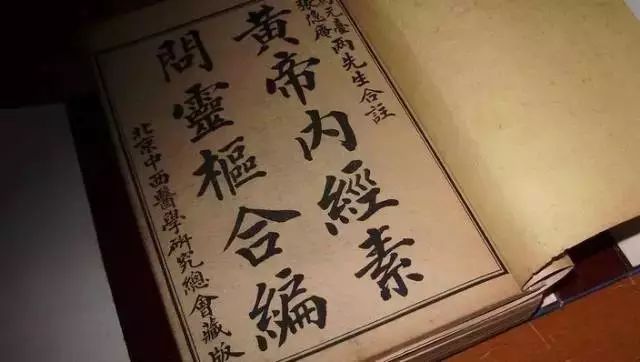 張隱庵
元臺兩先生合註
黃帝內經素
問靈樞合編
北京中西醫學研究總會藏版